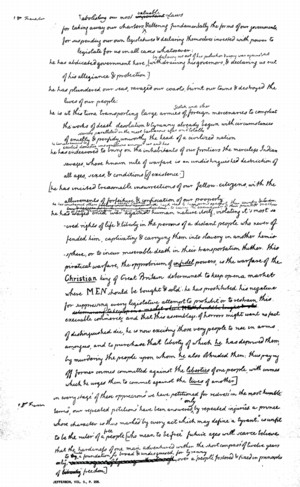 abolishing our most valuable laws
for taking away our charters & altering fundamentally the forms of our governments
for suspending our own legislatures & declaring themselves invested with power to
legislate for us in all cases whatsoever
he has abdicated government here
withdrawing his governors, & declaring us out
of his allegiance & protection]
he has plundered our seas, ravaged our coasts, burnt our towns & destroyed the
lives of our people:
he is at this time transporting large armies of foreign mercenaries to compleat
the works of death, desolation & tyranny already begun with circumstances
of cruelty & perfidy unworthy the head of a civilized nation
he has endeavored to bring on the inhabitants of our frontiers the merciless Indian
savages, whose known rule of warfare is an undistinguished destruction of
all ages, sexes, & conditions [of existence:]
[he has incited treasonable insurrections of our fellow-citizens, with the
allurements of forfeiture & confiscation of our property
he has waged cruel war against human nature itself, violating it's most sa-
-cred rights of life & liberty in the persons of a distant people who never of-
fended him, captivating & carrying them into slavery in another hemi-
sphere, or to incur miserable death in their transportation thither. this
piratical warfare, the opprobrium of infidel powers, is the warfare of the
Christian king of Great Britain determined to keep open a market
where MEN should be bought & sold he has prostituted his negative
for suppressing every legislative attempt to prohibit or to restrain this
execrable commerce: and that this assemblage of horrors might want no fact
of distinguished die, he is now exciting those very people to rise in arms
among us, and to purchase that liberty of which he has deprived them,
by murdering the people upon whom he also obtruded them: thus paying
off former crimes committed against the liberties of one people, with crimes
which he urges them to commit against the lives of another]
in every stage of these oppressions we have petitioned for redress in the most humble
terms; our repeated petitions have been answered only by repeated injuries. a prince
whose character is thus marked by every act which may define a tyrant, is unfit
to be the ruler of a people [who mean to be free. future ages will scarce believe
that the hardiness of one man, adventured within the short compass of twelve years
over a people fostered & fixed in principles
of freedom]
JEFFERSON, VOL. I, P.